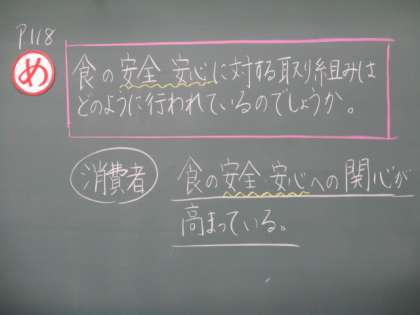 P118
め
食の安全 安心に対する取り組みは
どのように行われているのでしょうか。
消費者
食の安全 安心への関心が
高まっている。